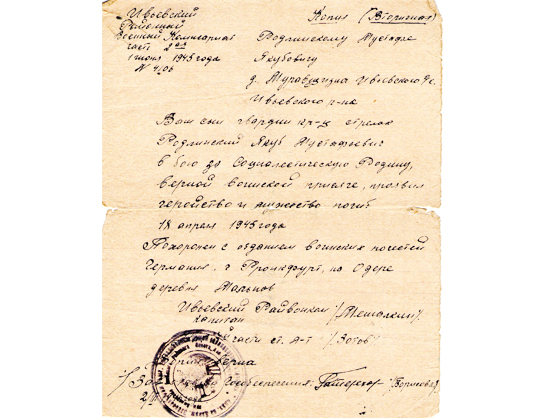 Ивьевский
Районный
Военный Комиссариат
часть 2ая
1 июня 1945 года
№ 4106
Копия (Вторичная)
Родлинскому Мустафе
Якубовичу
д. Муравщизна Ивьевского с/с.
Ивьевского р-на
Ваш сын гвардии кр-ц стрелок
Родлинский Якуб Мустафьевич
в бою за Социалистическую Родину,
верной воинской присяге, проявив
геройство и мужество погиб
18 апреля 1945 года
Похоронен с отданием воинских почестей
Германия, г. Франкфурт, на Одере
деревня Мальнов
Ивьевский Райвоенком /Мешалкин/.
капитан
части ст. л-т /Зотов/
Верна
обеспечения